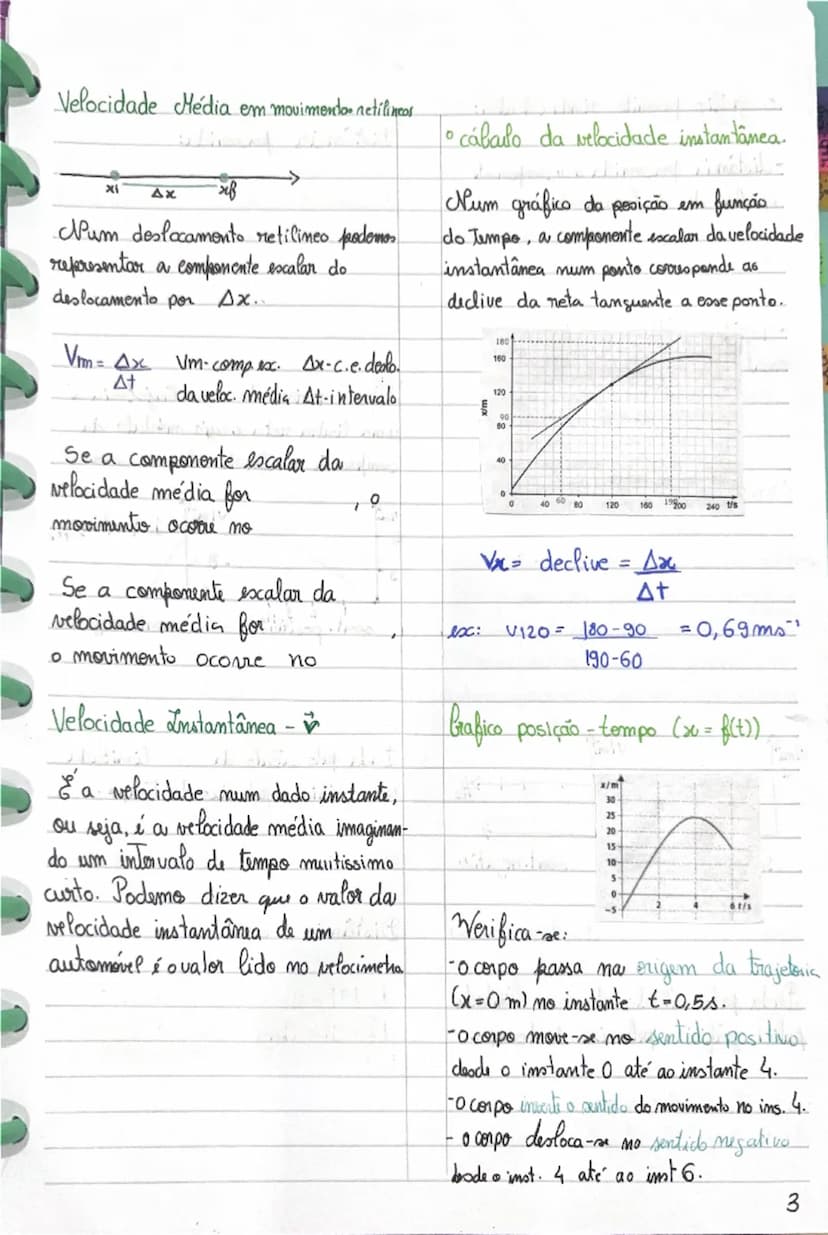 Velocidade Média em movimentos retilíneos
xi Δx xf
Num deslocamento retilineo podemos
representar a componente escalar do
deslocamento por Δx.
Vm = Δx/Δt Vm-comp esc. Δx-c.e. deslo.
da veloc. média Δt-intervalo
Se a componente escalar da
velocidade média for , o
movimento ocorre no
Se a componente escalar da
velocidade média for ,
o movimento ocorre no
Velocidade Instantânea - v⃗
É a velocidade num dado instante,
ou seja, é a velocidade média imaginan-
do um intervalo de tempo muitissimo
curto. Podemo dizer que o valor da
velocidade instantânea de um
automóvel é o valor lido no velocimetro
° cálculo da velocidade instantânea.
Num gráfico da posição em função
do Tempo, a componente escalar da velocidade
instantânea num ponto corresponde ao
declive da reta tanguente a esse ponto.
x/m
180
160
120
90
80
40
0
0 40 60 80 120 160 190 200 240 t/s
Vx = declive = Δx/Δt
ex: V120 = 180-90 / 190-60 = 0,69 ms⁻¹
Grafico posição - tempo (x = f(t))
x/m
30
25
20
15
10
5
0
-5
2 4 6 t/s
Verifica-se:
-o corpo passa na origem da trajetoria
(x=0 m) no instante t=0,5s.
-o corpo move-se no sentido positivo
desde o instante 0 até ao instante 4.
-o corpo inverte o sentido do movimento no ins. 4.
- o corpo desloca-se no sentido negativo
desde o inst. 4 até ao inst 6.
3